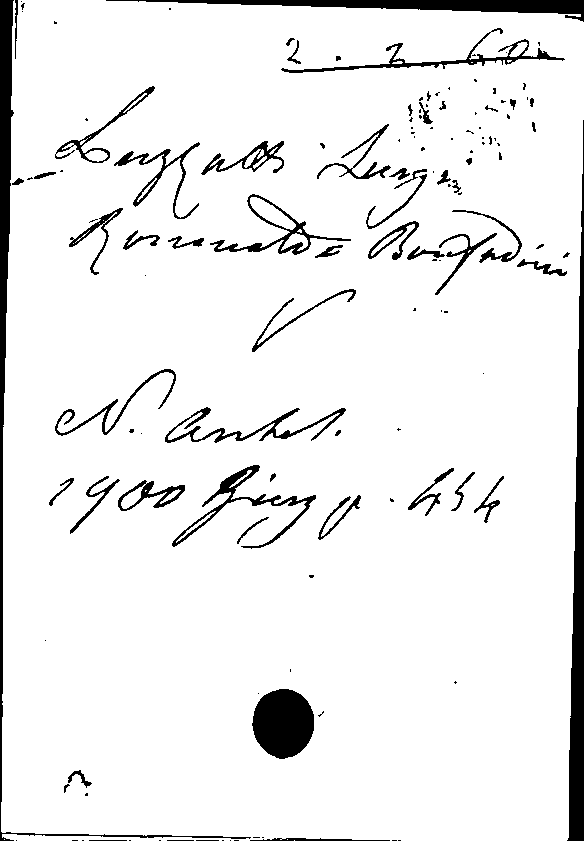 2. 2. 60
Luzzatti Luigi
Romualdo Bonfadini
V
N. Antol.
1900 Giug p. 454